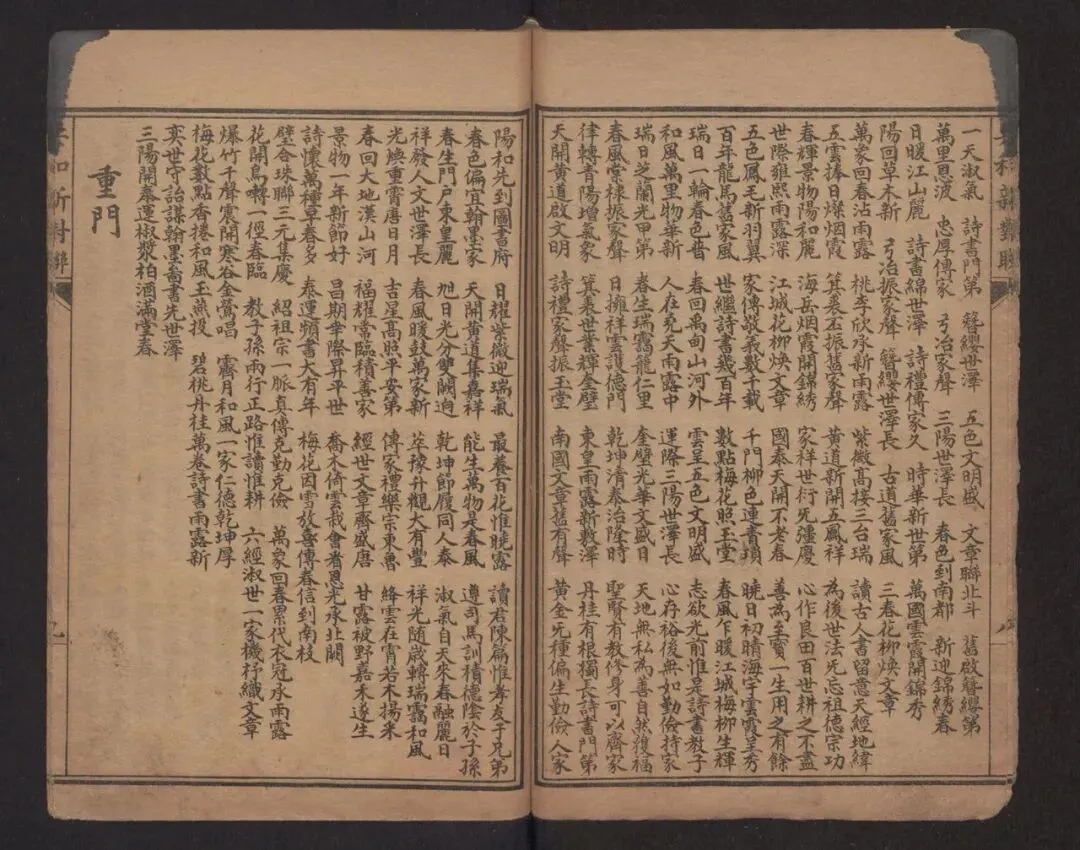 和新對聯
一天淑氣 詩書門第 簪纓世澤 五色文明盛 文章聯北斗 舊啟簪纓第
萬里恩波 忠厚傳家 弓冶家聲 三陽世澤長 春色到南郡 新迎錦綉春
日暖江山麗 詩書綿世澤 詩禮傳家久 時華新世第 萬國雲霞開錦秀
陽回草木新 弓冶振家聲 簪纓世澤長 古道舊家風 三春花柳煥文章
萬象回春沾雨露 桃李欣承新雨露 紫微高接三台瑞 讀古人書留意天經地緯
五雲捧日燦烟霞 箕裘丕振舊家聲 黃道新開五鳳祥 為後世法旡忘祖德宗功
春輝景物陽和麗 海岳烟霞開錦綉 家祥世衍旡彊慶 心作良田百世耕之不盡
世際雍熙雨露深 江城花柳煥文章 國泰天開不老春 善為至寶一生用之有餘
五色鳳毛新羽翼 家傳敬義數千載 千門柳色連書瑣 曉日初晴海宇雲霞呈秀
百年龍馬舊家風 世繼詩書幾百年 數點梅花照玉堂 春風乍暖江城梅柳生輝
瑞日一輪春色普 春回禹甸山河外 雲呈五色文明盛 志欲光前惟是詩書教子
和風萬里物華新 人在堯天雨露中 運際三陽世澤長 心存裕後無如勤儉持家
瑞日芝蘭光甲第 春生瑞靄籠仁里 奎璧光華文盛日 天地無私為善自然獲福
春風棠棣振家聲 日擁祥雲護德門 乾坤清泰治隆時 聖賢有教修身可以齊家
律轉青陽增氣象 箕裘世業輝奎璧 東皇雨露新敷澤 丹桂有根獨長詩書門第
天開黃道啟文明 詩禮家聲振玉堂 南國文章舊有聲 黃金旡種偏生勤儉人家
陽和先到圖書府 日耀紫微迎瑞氣 最養百花惟曉露 讀君陳篇惟孝友于兄弟
春色偏宜翰墨家 天開黃道集嘉祥 能生萬物是春風 遵司馬訓積德陰於子孫
春生門戶東皇麗 旭日光分雙闕迥 乾坤節履同人泰 淑氣自天來春融麗日
祥發人文世澤長 春風暖鼓萬家新 萃豫升觀大有豐 祥光随歲轉瑞靄和風
光煥重霄唐日月 吉星高照平安第 傳家禮樂宗東魯 絳雲在霄若木揚釆
春回大地漢山河 福耀常臨積善家 經世文章齊盛唐 甘露被野嘉禾遂生
景物一年新節好 昌期幸際昇平世 喬木倚雲栽會看恩光承北闕
詩懷萬種草春多 泰運頻書大有年 梅花因雪放喜傳春信到南枝
璧合珠聯三元集慶 紹祖宗一脈真傳克勤克儉 萬象回春累代衣冠承雨露
花開鳥囀一徑春臨 教子孫兩行正路惟讀惟耕 六經淑世一家機杼織文章
爆竹千聲震開寒谷金鶯唱 霽月和風一家仁德乾坤厚
梅花數點香捲和風玉燕投 碧桃丹桂萬卷詩書雨露新
奕世守詒謀翰墨圖書先世澤
三陽開泰運椒漿柏酒滿堂春
重門
和新對聯
九